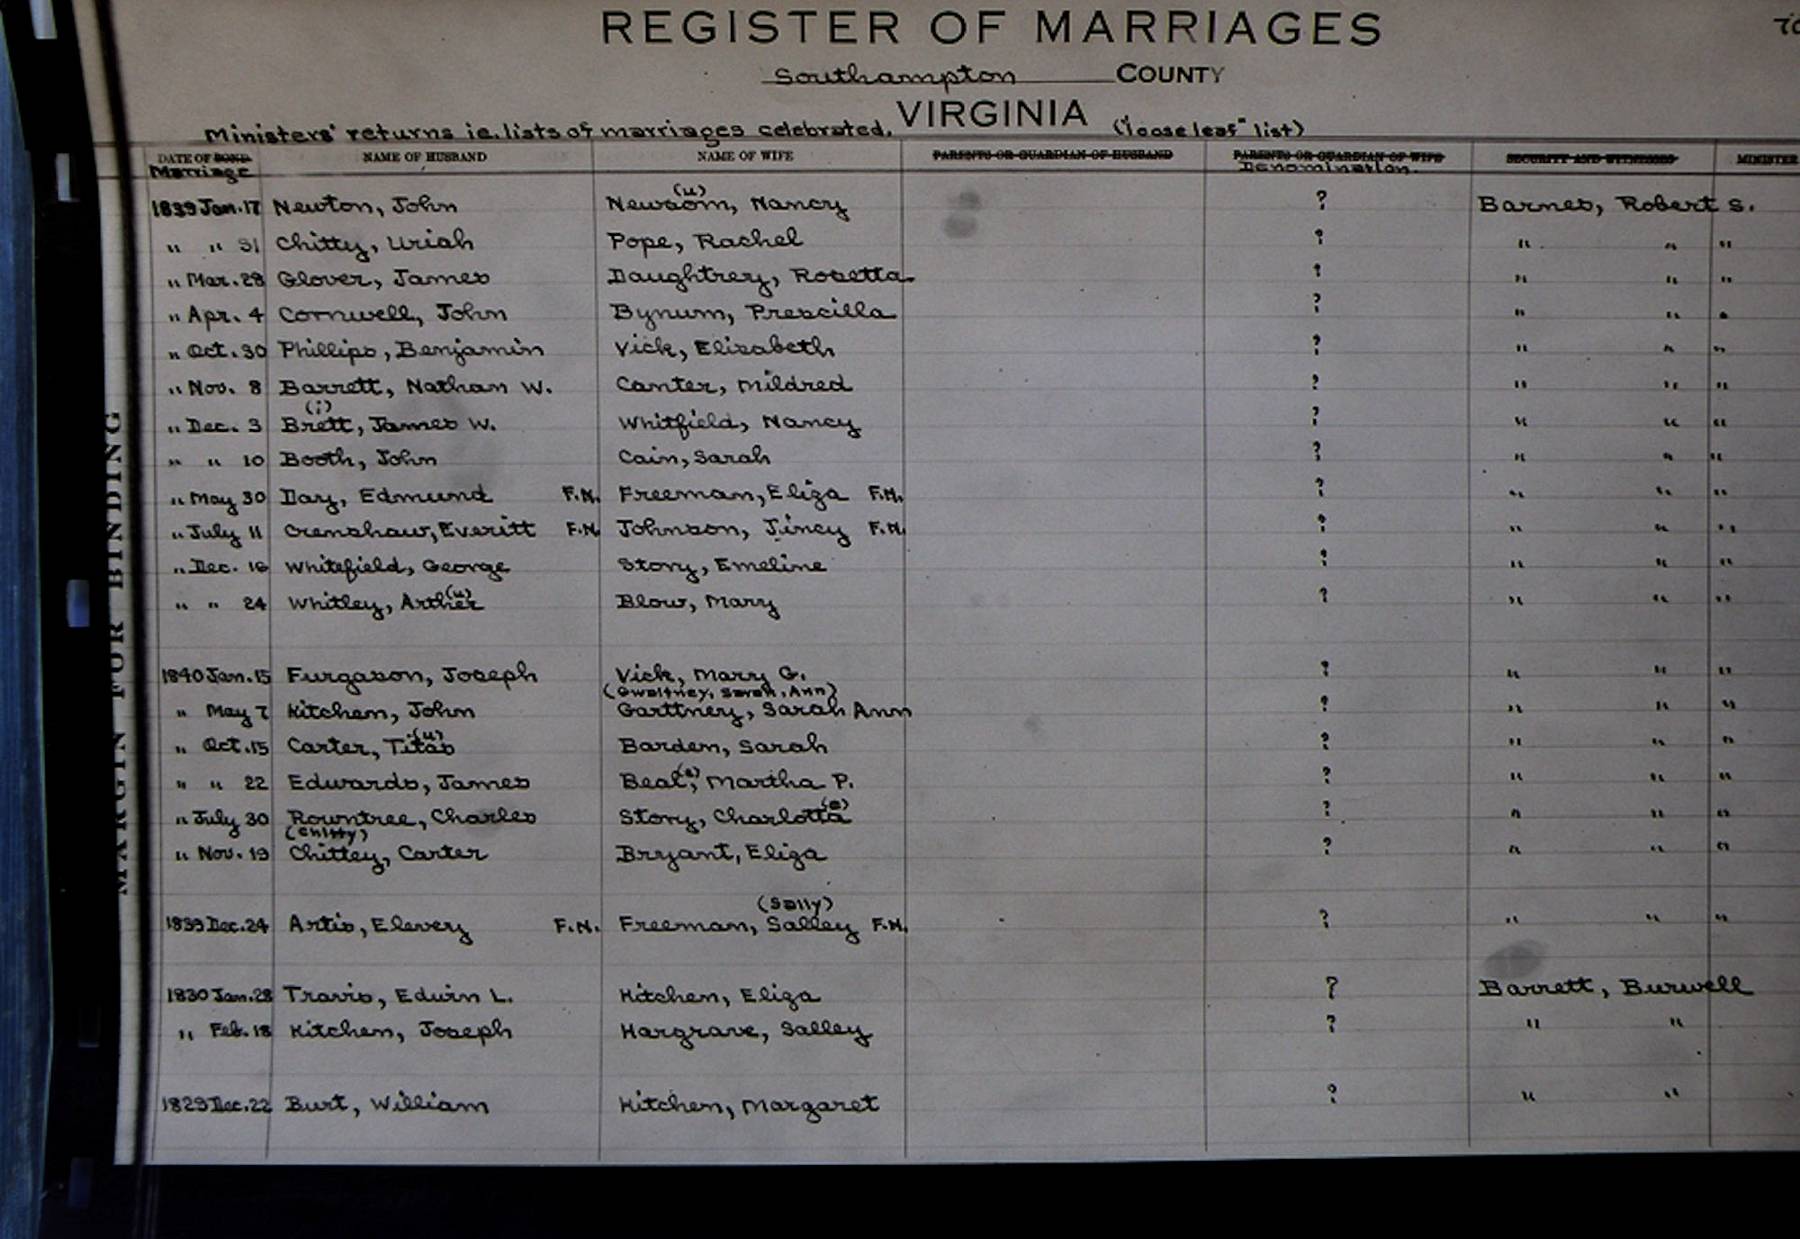 REGISTER OF MARRIAGES
Southampton COUNTY
VIRGINIA
Ministers' returns ie. lists of marriages celebrated. ("loose leaf" list)
DATE OF BOND NAME OF HUSBAND NAME OF WIFE PARENTS OR GUARDIAN OF HUSBAND PARENTS OR GUARDIAN OF WIFE SECURITY AND WITNESSES MINISTER
Marriage Denomination.
(u)
1839 Jan. 17 Newton, John Newsom, Nancy ? Barnes, Robert S.
" " 31 Chitty, Uriah Pope, Rachel ? " " "
" Mar. 28 Glover, James Daughtrey, Rosetta ? " " "
" Apr. 4 Cornwell, John Bynum, Prescilla ? " " "
" Oct. 30 Phillips, Benjamin Vick, Elisabeth ? " " "
" Nov. 8 Barrett, Nathan W. Canter, Mildred ? " " "
(i)
" Dec. 3 Brett, James W. Whitfield, Nancy ? " " "
" " 10 Booth, John Cain, Sarah ? " " "
" May 30 Day, Edmund F.N. Freeman, Eliza F.N. ? " " "
" July 11 Crenshaw, Everitt F.N. Johnson, Jincy F.N. ? " " "
" Dec. 16 Whitefield, George Story, Emeline ? " " "
" " 24 Whitley, Arther (u) Blow, Mary ? " " "
1840 Jan. 15 Furgason, Joseph Vick, Mary G. ? " " "
(Gwaltney, Sarah, Ann)
" May 7 Kitchen, John Garttney, Sarah Ann ? " " "
" Oct. 15 Carter, Titas (u) Barden, Sarah ? " " "
" " 22 Edwards, James Beal(e), Martha P. ? " " "
" July 30 Rowntree, Charles Story, Charlotta (e) ? " " "
(Chitty)
" Nov. 19 Chittey, Carter Bryant, Eliza ? " " "
(Sally)
1839 Dec. 24 Artis, Elevery F.N. Freeman, Salley F.N. ? " " "
1830 Jan. 28 Travis, Edwin L. Kitchen, Eliza ? Barrett, Burwell
" Feb. 18 Kitchen, Joseph Hargrave, Salley ? " "
1829 Dec. 22 Burt, William Kitchen, Margaret ? " "
MARGIN FOR BINDING